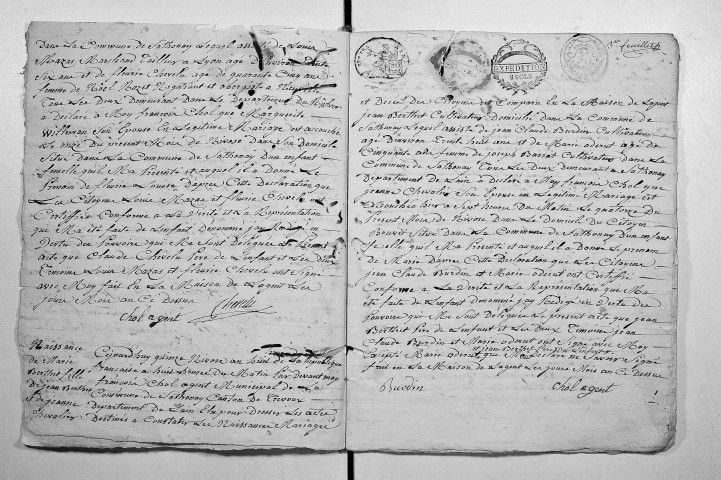 Dans La Commune de Sathonay Lequel assisté de Louis
Mazas Marchand tailleur a Lyon agé D'environ trente
Six ans et de fleurie Chevelu agé de quarante Cinq ans
femme de Noël Mazet Negotiant et abergiste a
Tous Les Deux Demeurant Dans Le Departement Du Rhône
a Declaré a Moy françois Chol que Marguerite
Witteman Son Epouse En Legitime Mariage est accouchée
Le onze Du present Mois de Nivose Dans Son Domicile
Situé Dans La Commune de Sathonay D'un Enfant
femelle quil Ma Presenté et auquel il a Donné Le
Prenom de fleurie Louise Dapres Cette Declaration que
Les Citoyens Louis Mazas et fleurie Chevelu ont
Certifiée Conforme a La Verité et La Representation
qui Ma été faite de Lenfant Denommé jay Redigé en
Vertu Des Pouvoirs qui Me Sont Délégués Le Present
acte que Claude Chevelu Pere de Lenfant et Les Deux
Temoins Louis Mazas et fleurie Chevelu ont Signé
avec Moy fait en La Maison de Lagent Les
jours Mois an Ci Dessus
Chol agent
Chevelu
Naissance
de Marie
Berthet fille
de jean Berthet
et de jeanne
Chevalier
Cejourdhuy quinze Nivose an huit de La Republique
francaise a huit heures Du Matin Par Devant moy
françois Chol agent Municipal de La
Commune de Sathonay Canton de Trevoux
Departement de Lain Elu pour Dresser Les actes
Destinés a Constater Les Naissances Mariages
3e feuillet
EXPEDITION
et Decès Des Citoyens est Comparu En La Maison de Lagent
jean Berthet Cultivateur Domicilié Dans La Commune de
Sathonay Lequel assisté de jean Claude Burdin Cultivateur
agé D'environ Trente huit ans et de Marie oderut agé de
Cinquante ans femme de joseph Barrat Cultivateur Dans La
Commune de Sathonay Tous Les Deux Demeurant a Sathonay
Departement de Lain a Declaré a Moy françois Chol que
jeanne Chevalier Son Epouse en Legitime Mariage est
accouchée hier a Sept heures Du Matin Le quatorze Du
Present Mois de Nivose Dans Le Domicile Du Citoyen
Bouvier Situé Dans La Commune de Sathonay D'un Enfant
femelle quil Ma Presenté et auquel il a Donné Le prenom
de Marie Dapres Cette Declaration que Les Citoyens
jean Claude Burdin et Marie oderut ont Certifié
Conforme a La Verité et La Representation qui Ma
été faite de Lenfant Denommé jay Redigé en Vertu des
Pouvoirs qui Me Sont Delegués Le present acte que jean
Berthet Pere de Lenfant et Les Deux Temoins jean
Claude Burdin et Marie oderut ont Signé avec Moy
Excepté Marie oderut que Nous a Déclaré ne Savoir Signé
fait en La Maison de Lagent Les jours Mois an Ci Dessus
Burdin
Chol agent